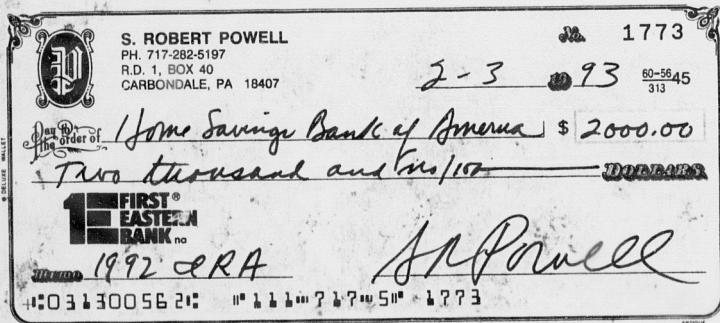 S. ROBERT POWELL
PH. 717-282-5197
R.D. 1, BOX 40
CARBONDALE, PA 18407
No. 1773
2-3 19 93
60-5645
313
Pay to the order of Home Savings Bank of America $ 2000.00
Two thousand and no/100 DOLLARS
1E FIRST® EASTERN BANK na
Memo 1992 IRA
S R Powell
⑆031300562⑆ ⑈111⑉717⑉5⑈ 1773
DELUXE WALLET